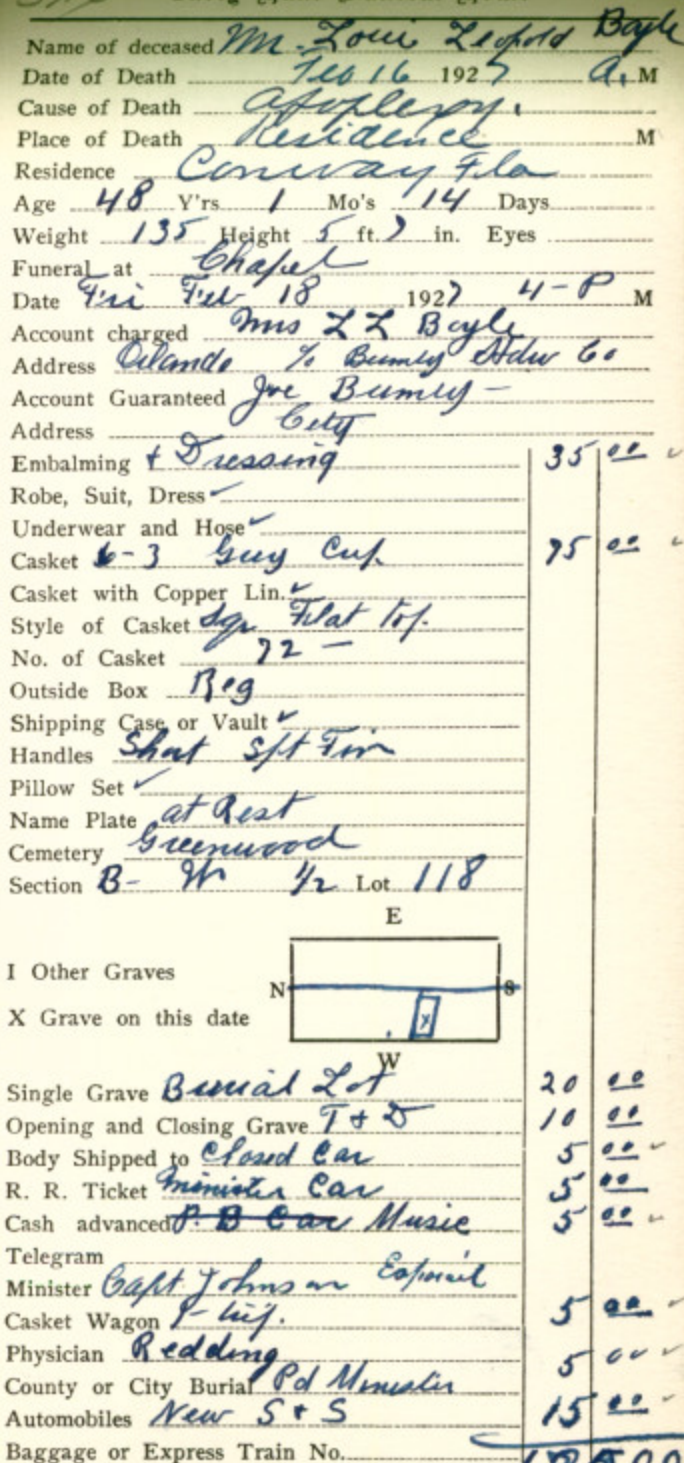 Name of deceased Mr. Loui Leopold Boyle
Date of Death Feb 16 1927 A. M
Cause of Death Apoplexy.
Place of Death Residence M
Residence Conway Fla
Age 48 Y'rs 1 Mo's 14 Days
Weight 135 Height 5 ft. 7 in. Eyes
Funeral at Chapel
Date Fri Feb 18 1927 4-P M
Account charged Mrs L L Boyle
Address Orlando % Bumby Hdw Co
Account Guaranteed Joe Bumby -
Address City
Embalming & Dressing 35 00
Robe, Suit, Dress ✓
Underwear and Hose ✓
Casket 6-3 Grey 75 00
Casket with Copper Lin. ✓
Style of Casket Sqr Flat Top.
No. of Casket 72 -
Outside Box Reg
Shipping Case or Vault ✓
Handles Short
Pillow Set ✓
Name Plate at Rest
Cemetery Greenwood
Section B- W 1/2 Lot 118
E
I Other Graves
N S
X Grave on this date
X
W
Single Grave Burial Lot 20 00
Opening and Closing Grave T & D 10 00
Body Shipped to Closed Car 5 00
R. R. Ticket Minister Car 5 00
Cash advanced P. B Car Music 5 00
Telegram
Minister Capt Johnson
Casket Wagon 5 00
Physician Redding 5 00
County or City Burial Pd Minister
Automobiles New S & S 15 00
Baggage or Express Train No.